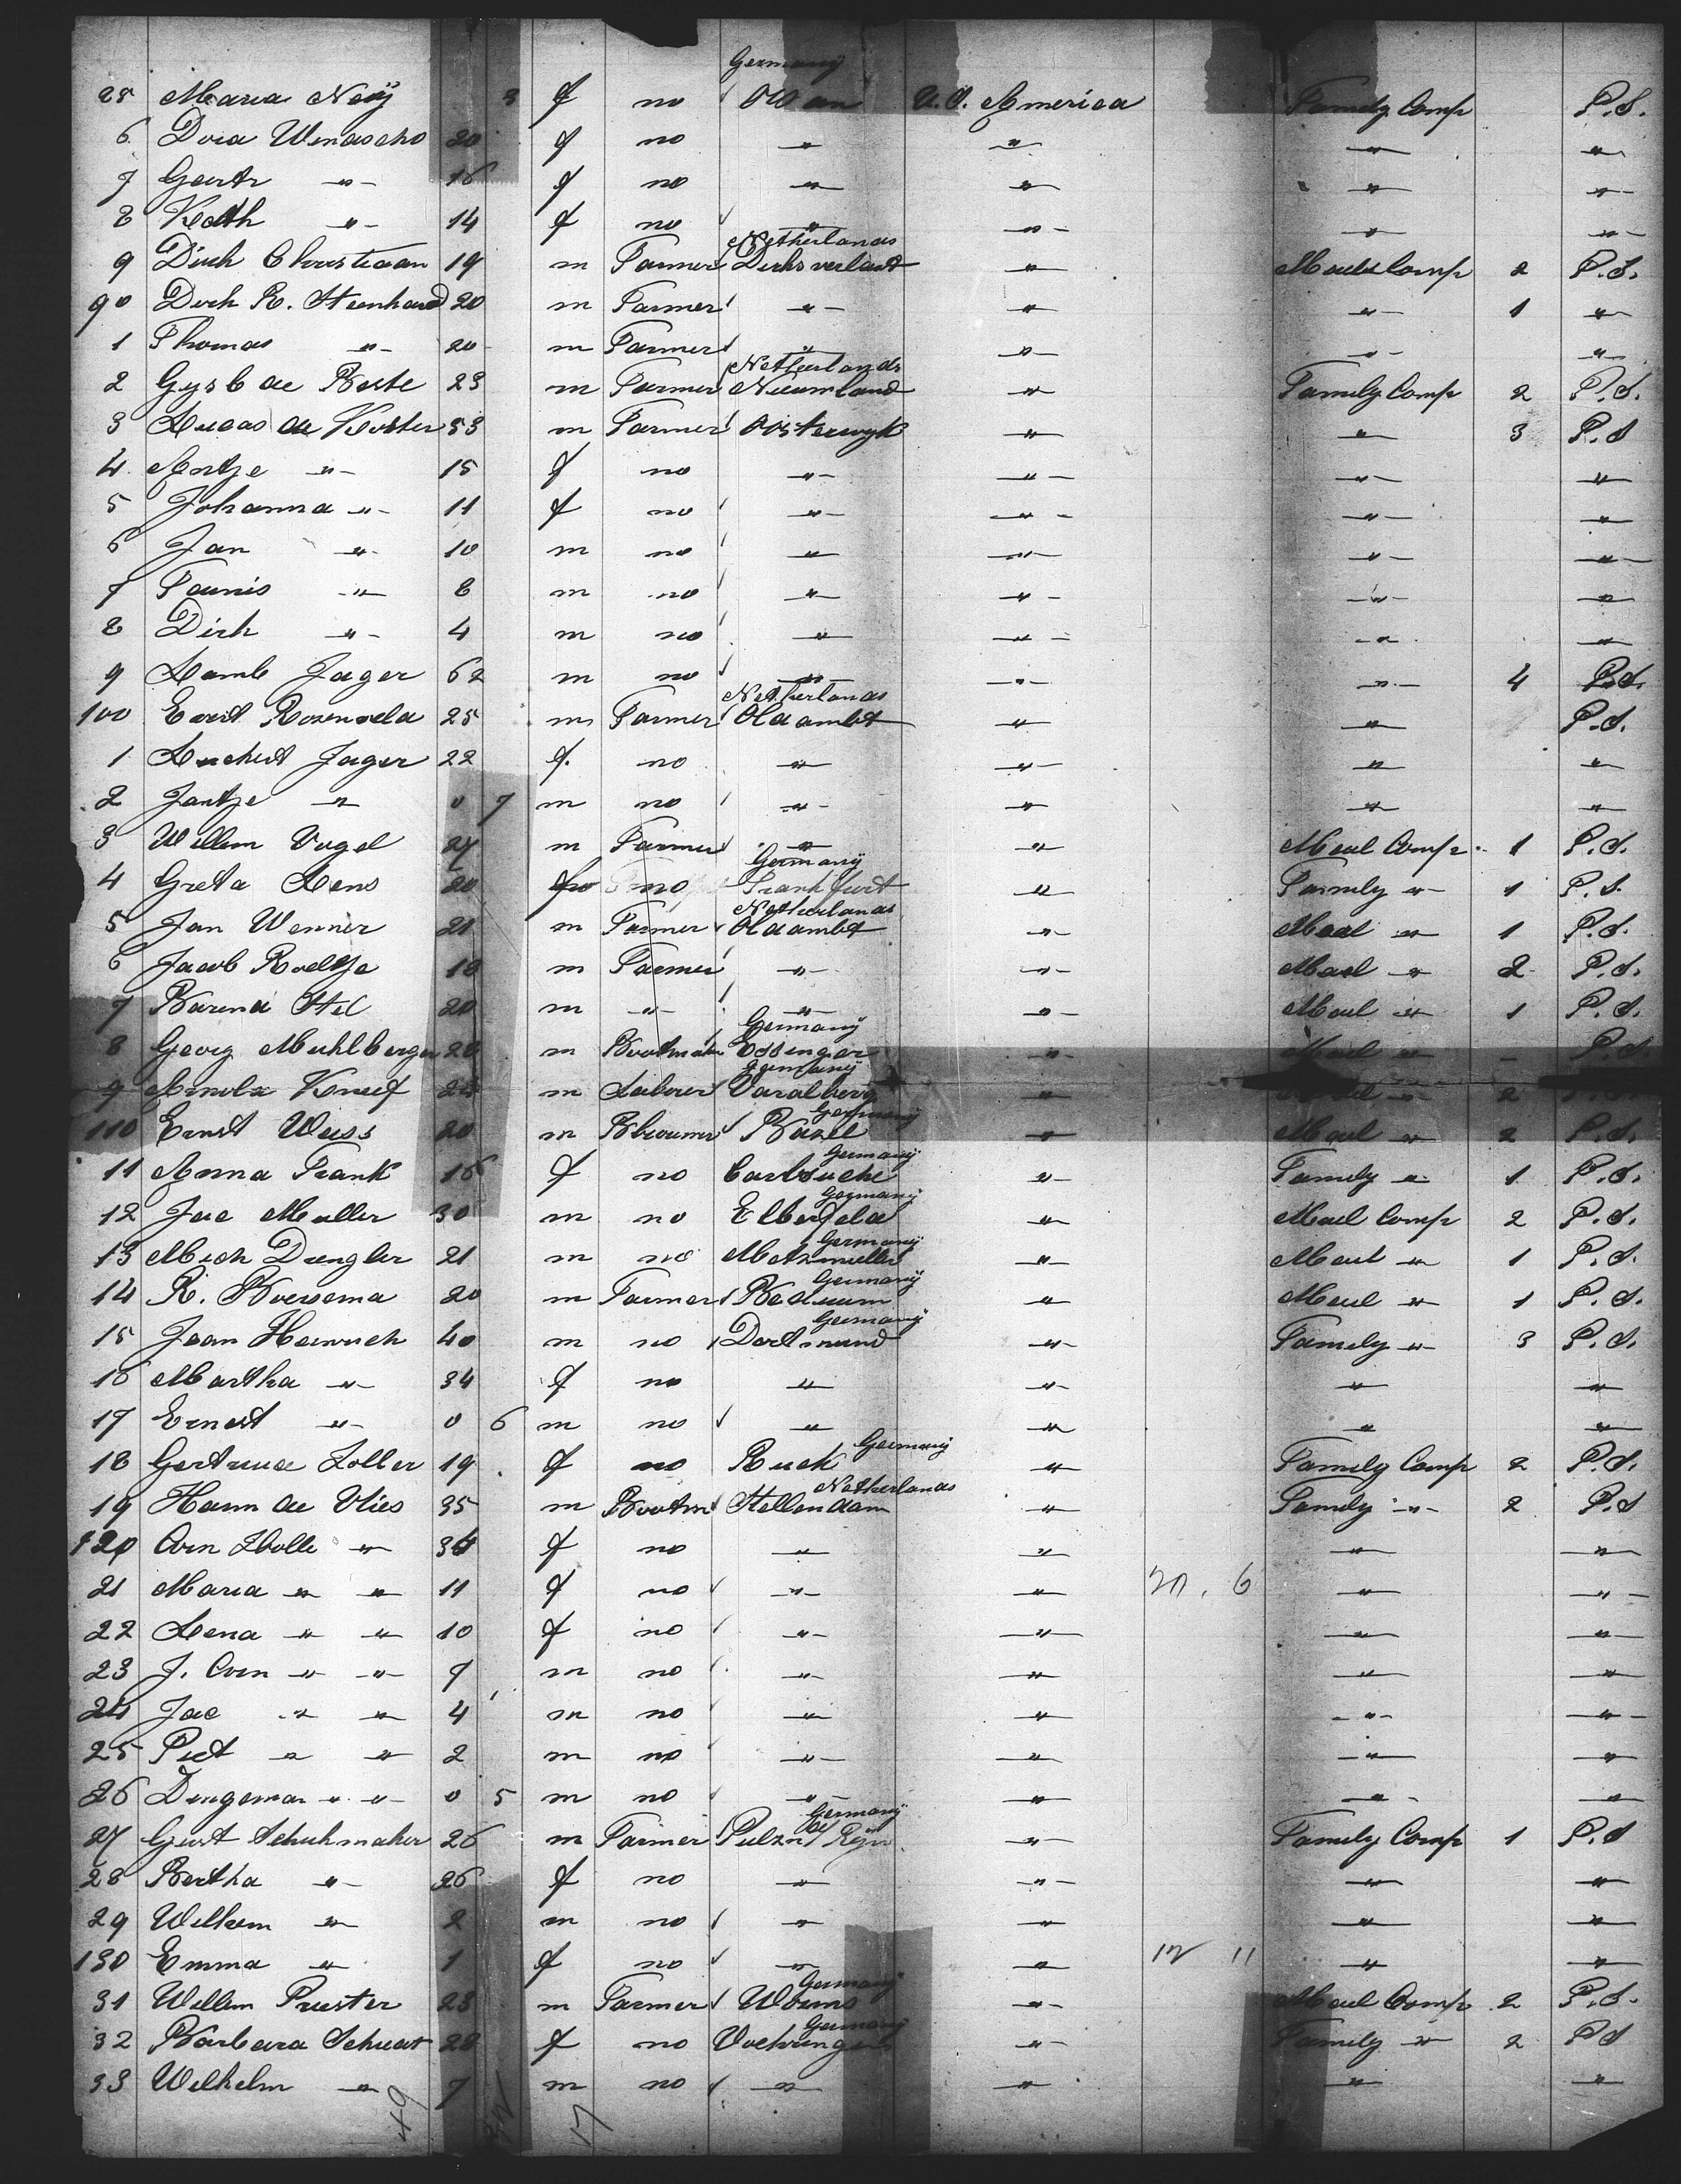 Germany
85 Maria Neÿ 3 f no U.S. America Family Comp P.S.
6 Dora 20 f no " " " "
7 " 16 f no " " " "
8 Kath " 14 f no " " " "
Netherlands
9 Dirk Christiaan 19 m Farmer " Maelscomp 2 P.S.
90 Dirk R. Steenhard 20 m Farmer " " " 1 "
1 Thomas " 20 m Farmer " " " "
Netherlands
2 Gysb de 23 m Farmer Nieuwland " Family Comp 2 P.S.
3 Lucas de Koster 53 m Farmer Oosterwyk " " 3 P.S
4 Antje " 15 f no " " " "
5 Johanna " 11 f no " " " "
6 Jan " 10 m no " " " "
7 Teunis " 8 m no " " " "
8 Dirk " 4 m no " " " "
9 Lamb Jager 62 m no " " " 4 P.S.
Netherlands
100 Evert Rozenveld 25 m Farmer Oldambt " " P.S.
1 Jager 22 f. no " " " "
2 Jantje " 0 7 m no " " " "
3 Willem Vogel 27 m Farmer " " Mael Comp. 1 P.S.
Germany
4 Greta Lens 20 no Frankfurt " Family " 1 P.S.
Netherlands
5 Jan Wenner 21 m Farmer Oldambt " Mael " 1 P.S.
6 Jacob 18 m Farmer " " Mael " 2 P.S.
7 Stel 20 m " " " Mael " 1 P.S.
Germany
8 Georg Muhlberger 28 m Bootmaker Essingen " Mael " - P.S
Germany
9 24 m Labourer " " 2
Germany
110 Ernst Weiss 20 m Bazel " Mael " 2 P.S.
Germany
11 Anna Frank 16 f no " Family " 1 P.S.
Germany
12 Jac Muller 30 m no Elberfeld " Mael Comp 2 P.S.
Germany
13 Mich Dengler 21 m no " Mael " 1 P.S.
Germany
14 R. Boersema 20 m Farmer Bedum " Mael " 1 P.S.
Germany
15 Jean Heinrich 40 m no Dortmund " Family " 3 P.S.
16 Martha " 34 f no " " " "
17 Ernest " 0 6 m no " " " "
Germany
18 Gertrude Zoller 19 f no " Family Comp 2 P.S.
Netherlands
19 Hann de Vlies 35 m Bootm Stellendam " Family " 2 P.S
120 Corn Zwolle " 34 f no " " " "
21 Maria " " 11 f no " " 20. 6 " "
22 Lena " " 10 f no " " " "
23 J. Corn " " 7 m no " " " "
24 Jac " " 4 m no " " " "
25 Piet " " 2 m no " " " "
26 Dingeman " " 0 5 m no " " " "
Germany
27 Gust Schuhmaker 26 m Farmer " Family Comp 1 P.S
28 Bertha " 26 f no " " " "
29 Wilhem " 2 m no " " " "
130 Emma " 1 f no " " 12 11 " "
Germany
31 Willem Priester 23 m Farmer Worms " Mael Comp 2 P.S.
Germany
32 Barbara 28 f no Voehringen " Family " 2 P.S
33 Wilhelm " 7 m no " " " "
49 17